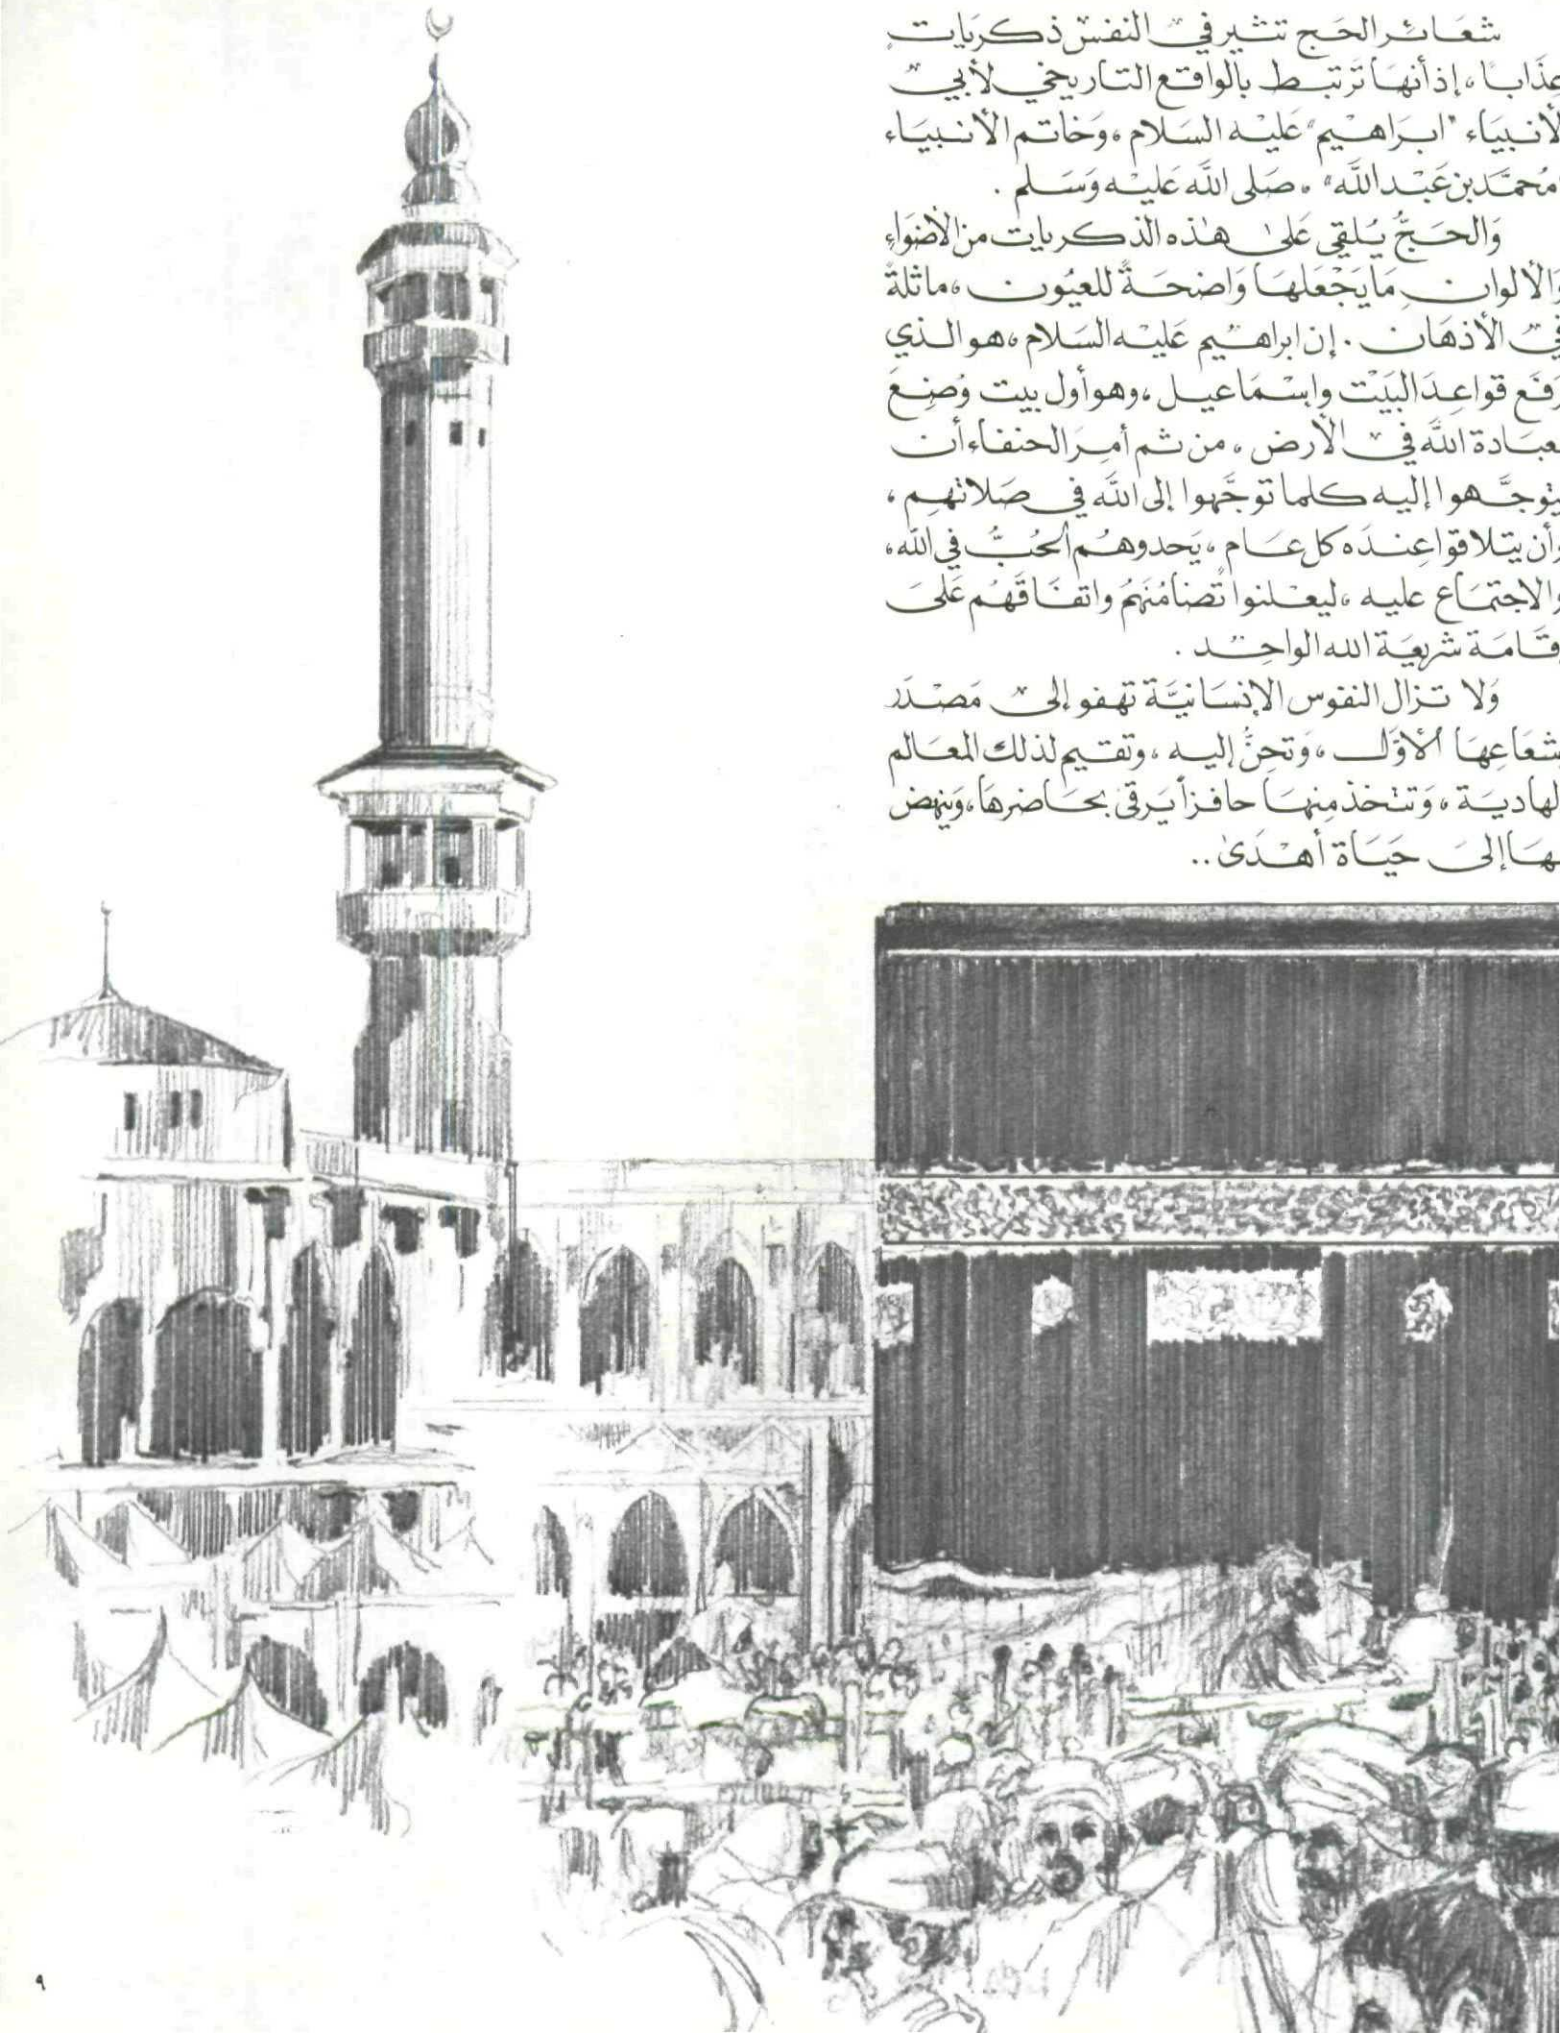 شعَائر الحَج تثير في النفس ذكريَاتٍ
عِذَابا، إذ أنهَا تَرتبط بالواقع التاريخي لأبي
الأنبيَاء "ابرَاهيْم" عَليْه السَلام، وَخاتم الأنبيَاء
"مُحمَّد بن عَبْد اللَّه"، صَلى اللَّه عَليْه وَسَلم.
وَالحَجُّ يُلقي عَلىٰ هٰذه الذكريات من الأضوَاءِ
وَالألوانِ مَا يَجْعَلهَا وَاضحَةً للعيُون، ماثلةً
في الأذهَان. إن ابراهيم عَليْه السَلام، هو الذي
رَفَع قواعِدَ البَيْت وابسْمَاعيل، وهو أول بيت وُضِعَ
لعبَادة اللَّه في الأرض، من ثم أمِرَ الحنفاء أن
يتوجَّهوا إليه كلما توجَّهوا إلى اللَّه في صَلاتهِم،
وأن يتلاقوا عِندَه كل عَام، يَحدوهُم الحُبُّ في اللّه،
والاجتمَاع عليه، ليعْلنوا تَضامُنَهُم واتفَاقَهُم عَلىَ
إقَامَة شريعَة الله الواحِد.
وَلا تزال النفوس الإنسَانيَّة تهفو إلى مَصْدَر
إشعَاعِهَا الأوَّل، وَتحِنُّ إليه، وتقيم لذلك المعَالم
الهادية، وَتتخذ مِنهَا حافزاً يَرقىٰ بحَاضرهَا، وَينهض
بهَا إلىَ حَيَاة أهْدَىٰ..
٩